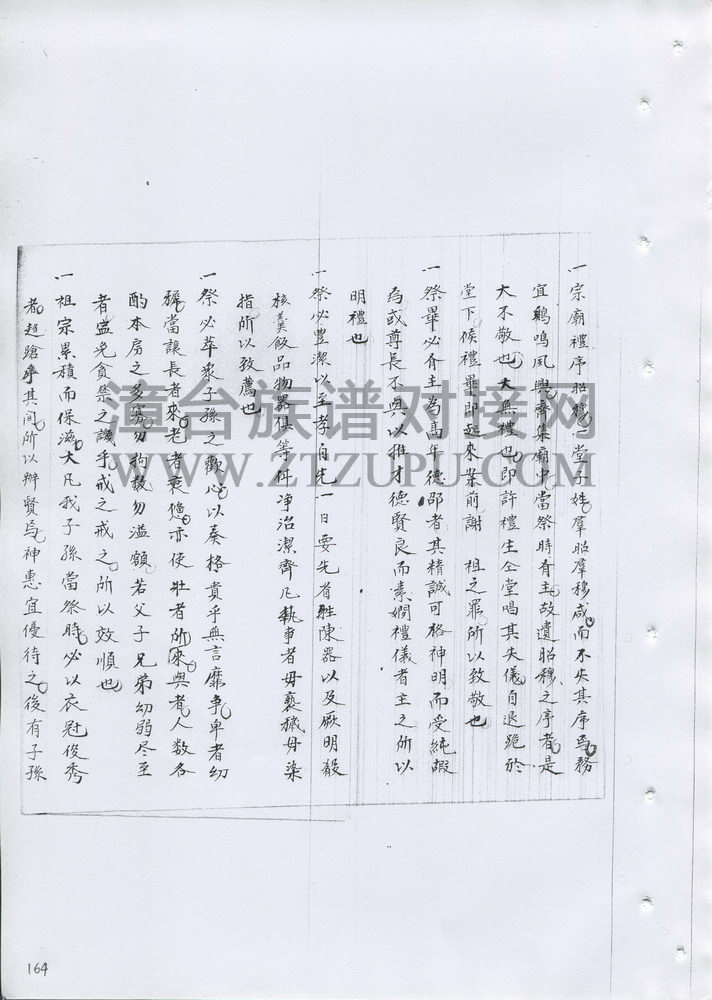 一宗廟禮序昭穆一堂子姓羣昭羣穆咸而不失其序焉務
宜鷄鳴夙興齊集廟中當祭時有主故遺昭穆之序者是
大不敬也大無禮也即許禮生仝堂唱其失儀自退跪於
堂下候禮畢即起來案前謝 祖之罪所以致敬也
一祭畢必有主為高年德邵者其精誠可格神明而受純嘏
焉或尊長不與以推才德賢良而素嫻禮儀者主之所以
明禮也
一祭必豊潔以至孝自先一日要先省牲陳器以及厥明殺
核羹飯品物器俱等科净治潔齊凡執事者毋褻穢毋染
指所以致薦也
一祭必萃衆子孫之歡心以奏格貴乎無言靡争卑者幼
穉當讓長者來老者衰憊亦使壯者所來與者人数名
酌本房之多寡勿拘数勿溢額若父子兄弟幼弱尽至
者盍免貪祭之譏乎戒之戒之所以效順也
一祖宗累積而保海大凡我子孫當祭時必以衣冠俊秀
者趨蹌序其間所以辯賢焉神惠宜優待之後有子孫
漳台族谱对接网
WWW.ZTZUPU.COM
164